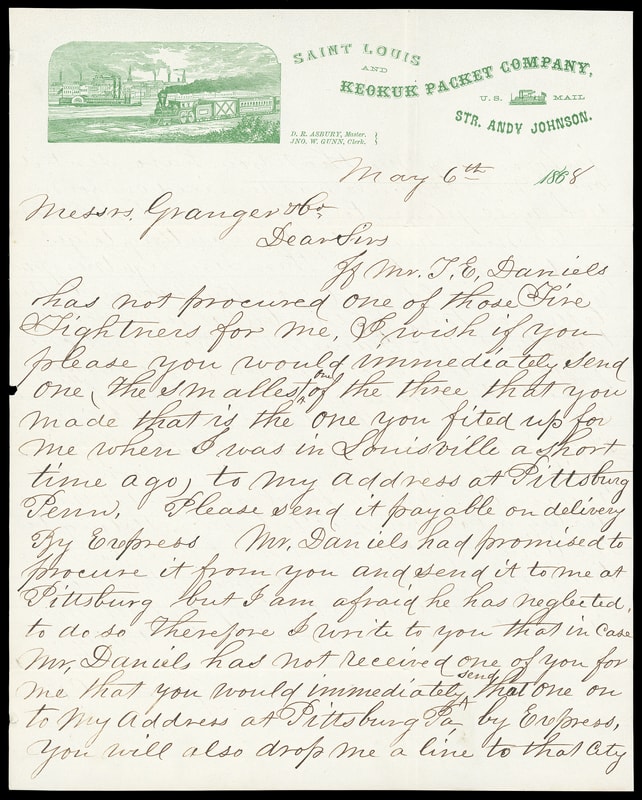 SAINT LOUIS
AND
KEOKUK PACKET COMPANY,
U.S. MAIL
STR. ANDY JOHNSON.
D. R. ASBURY, Master.
JNO. W. GUNN, Clerk.
May 6th 1868
Messrs. Granger & Co.
Dear Sirs
If Mr. T. E. Daniels
has not procured one of those Tire
Tightners for me, I wish if you
please you would immediately send
one, the smallest one of the three that you
made that is the one you fited up for
me when I was in Louisville a short
time ago, to my address at Pittsburg
Penn. Please send it payable on delivery
By Express Mr. Daniels had promised to
procure it from you and send it to me at
Pittsburg but I am afraid he has neglected,
to do so Therefore I write to you that in case
Mr, Daniels has not received one of you for
me that you would immediately send that one on
to My Address at Pittsburg Pa by Express,
you will also drop me a line to that City